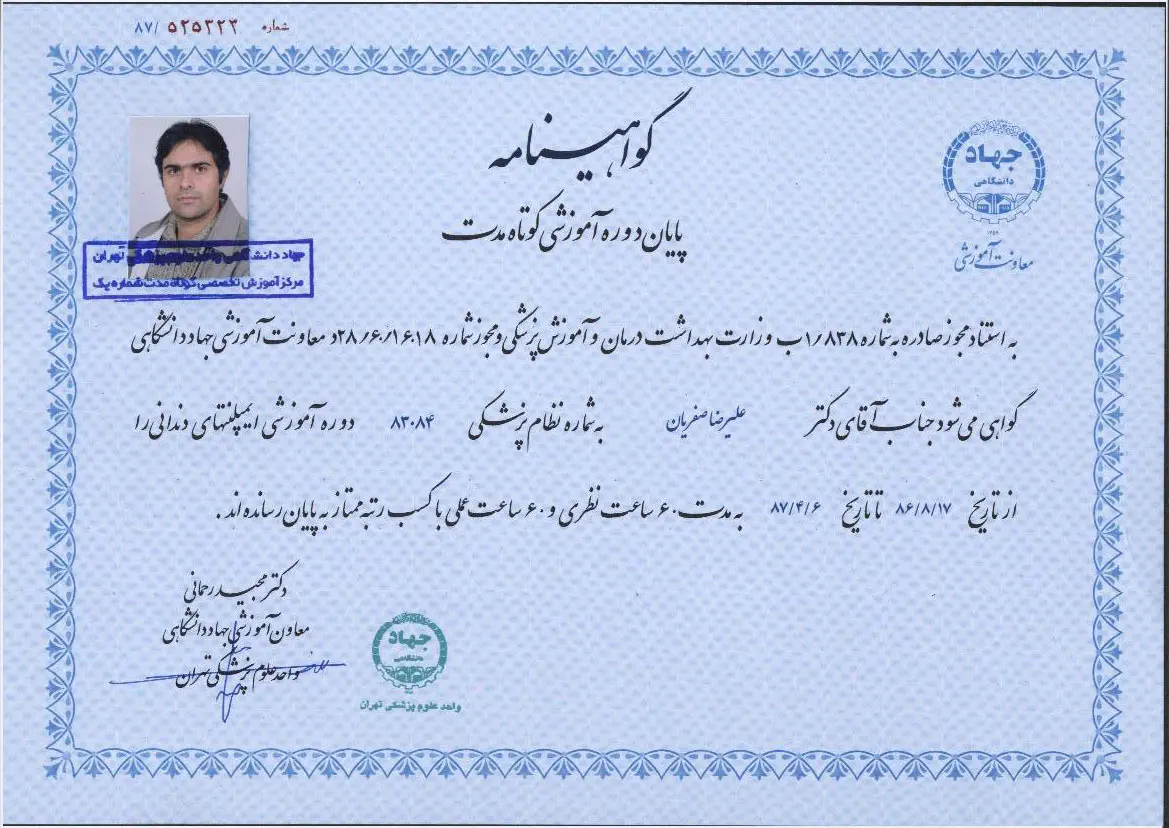 شماره ۵۲۵۳۲۴ /۸۷
جهاد
دانشگاهی
۱۳۵۹
معاونت آموزشی
گواهینامه
پایان دوره آموزشی کوتاه مدت
جهاد دانشگاهی واحد علوم پزشکی تهران
مرکز آموزش تخصصی کوتاه مدت شماره یک
به استناد مجوز صادره به شماره ۱/۸۳۸ب وزارت بهداشت درمان و آموزش پزشکی و مجوز شماره ۲۸/۶/۱۶۰۱۸د معاونت آموزشی جهاد دانشگاهی
گواهی می شود جناب آقای دکتر علیرضا صفریان به شماره نظام پزشکی ۸۳۰۸۴ دوره آموزشی ایمپلنتهای دندانی را
از تاریخ ۸۶/۸/۱۷ تا تاریخ ۸۷/۴/۶ به مدت ۶۰ ساعت نظری و ۶۰ ساعت عملی با کسب رتبه ممتاز به پایان رسانده اند .
دکتر مجید رحمانی
معاون آموزشی جهاد دانشگاهی
واحد علوم پزشکی تهران
جهاد
دانشگاهی
واحد علوم پزشکی تهران